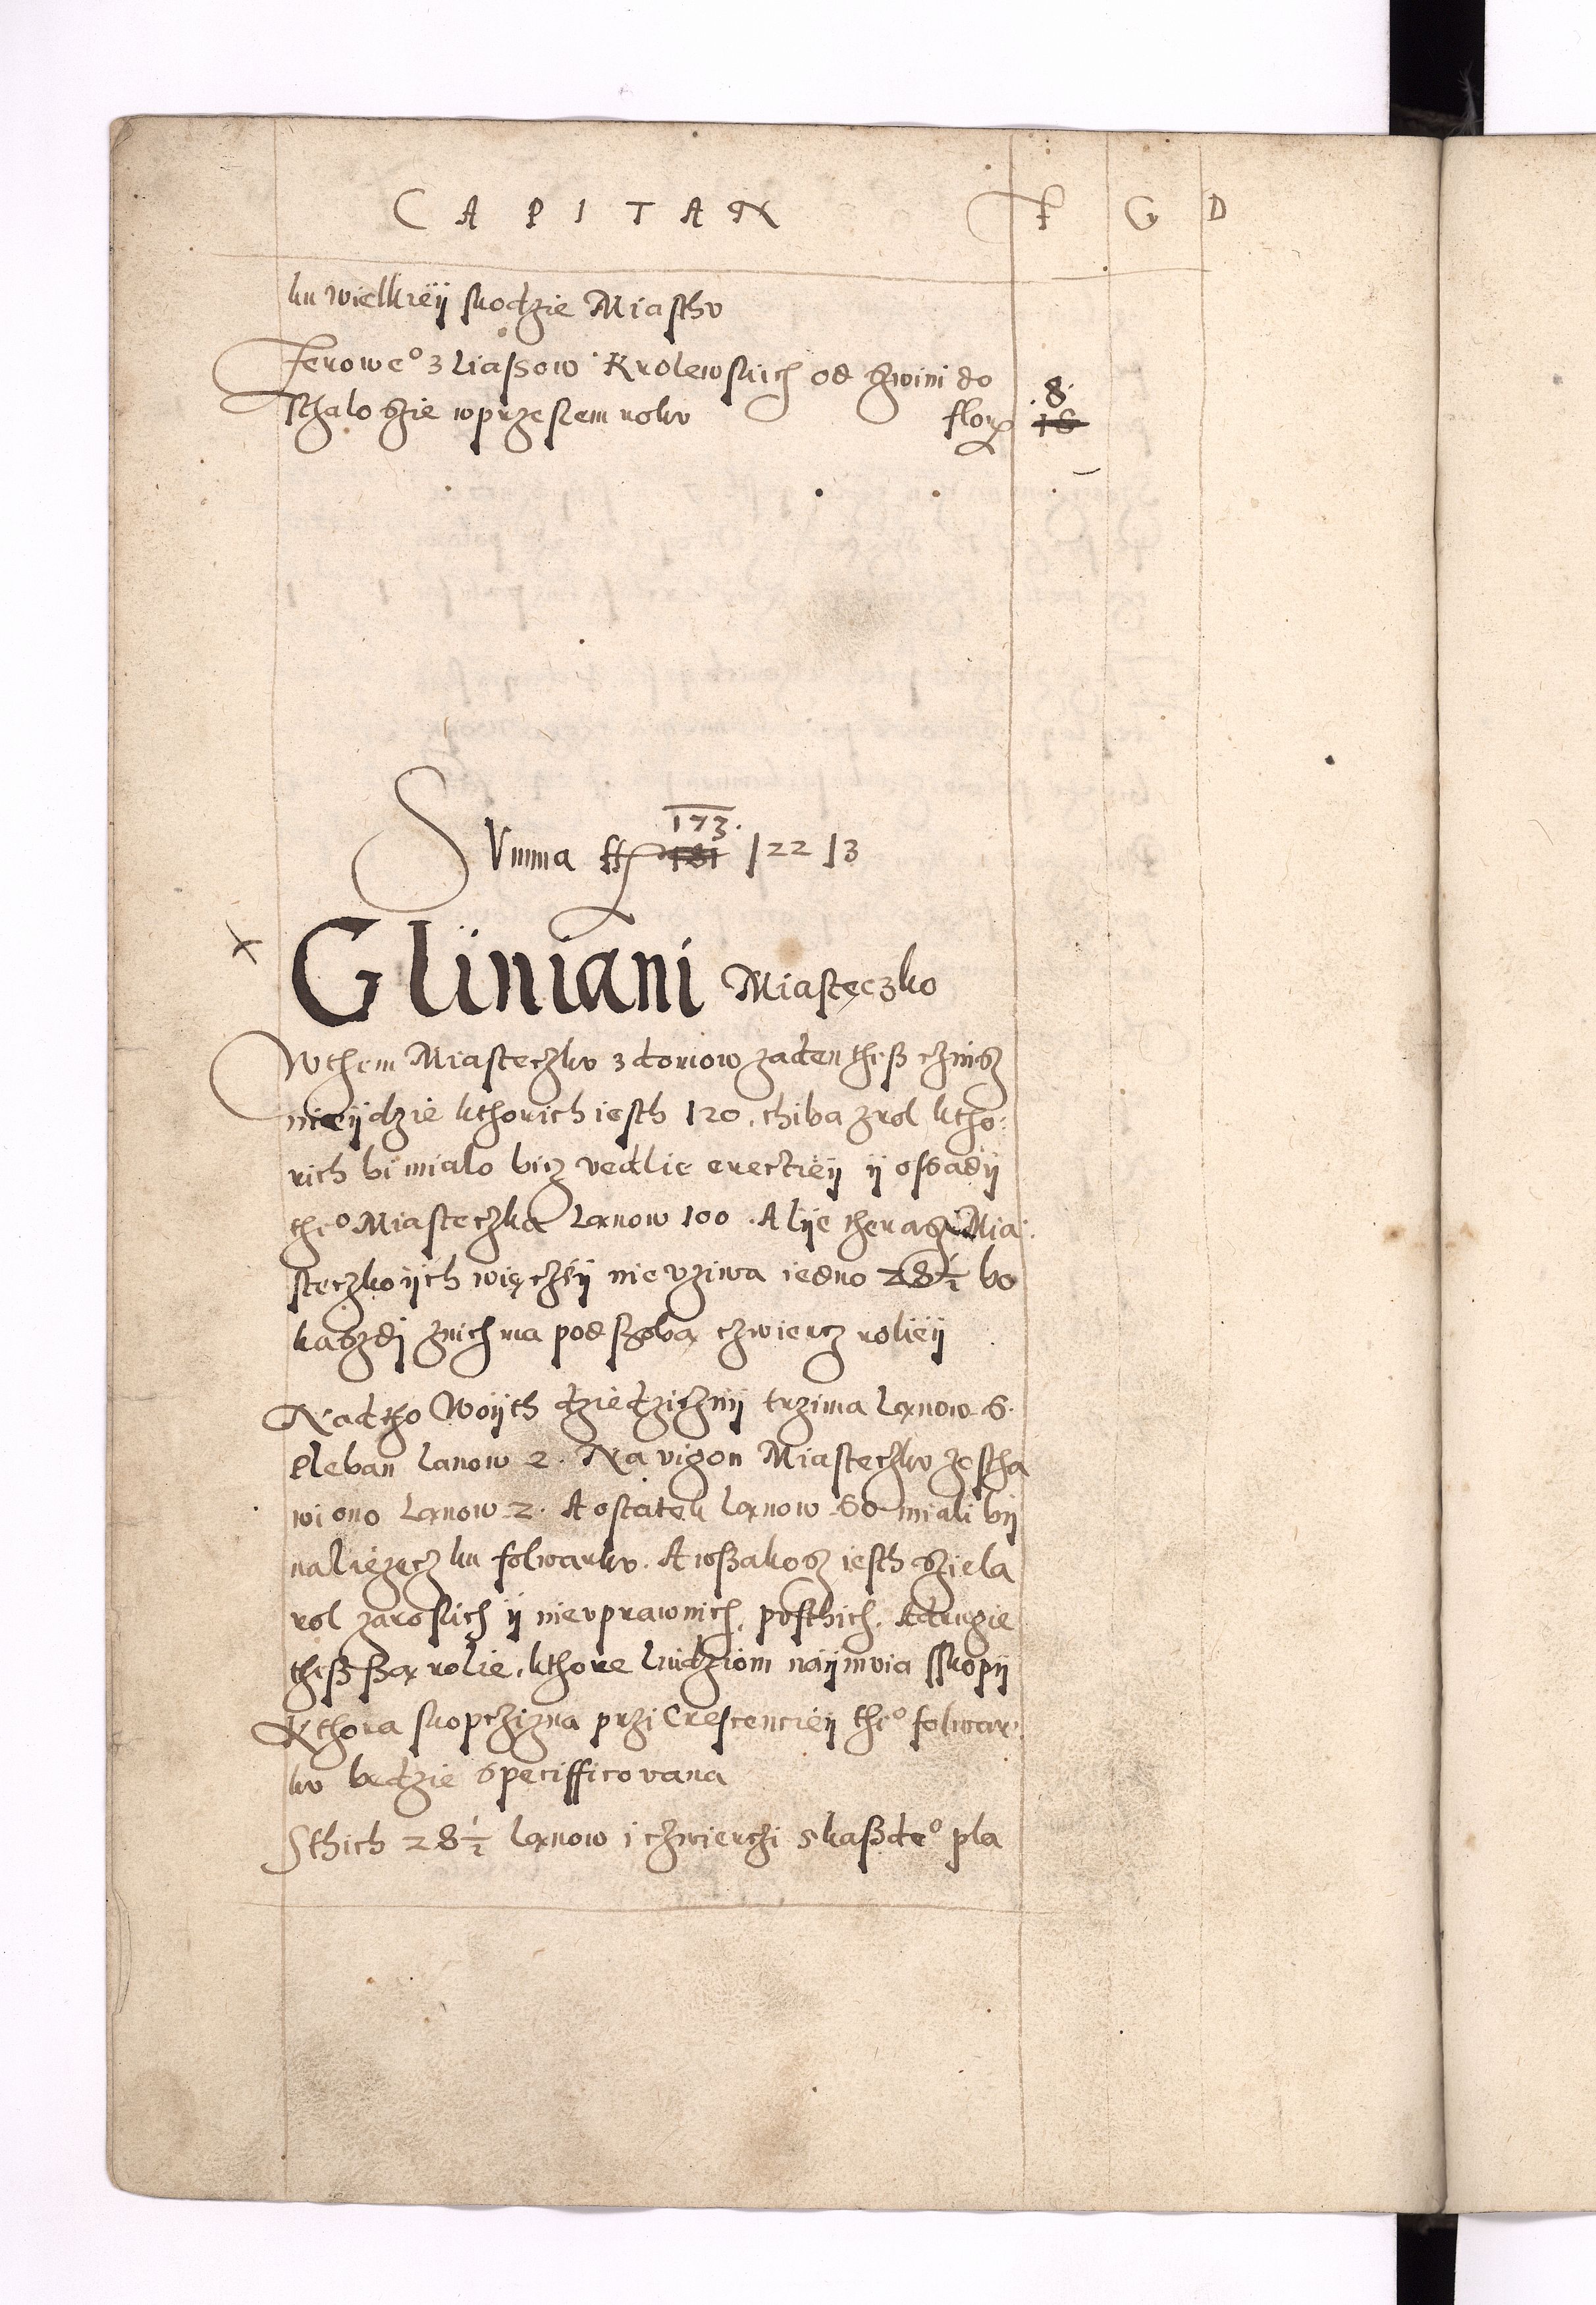 CAPITAN F G D
ku wielkiey skodzie Miasthu
Żerowe° z liassow Krolewskich od swini do
sthalo szie wprzeslem roku flor 8.
16
173.
Summa ff 181 / 22 / 3
Gliniani Miasteczko
Wthem Miasteczku z domow zaden theß czinsz
nieydzie kthorich iesth 120. chiba zrol ktho:
rich bi mialo bicz vedlie erectiey y osady
the° Miasteczka Lanow 100. Alye therasz Mia:
steczko ych więczsy nie vziwa iedno 28 1/2 bo
kaszdi znich ma pod szoba czwiercz roliey
Nadtho Woyth dziedziczny trzima lanow 6.
Pleban lanow 2. Na vigon Miasteczku zostha
wiono Lanow 2. A ostatek lanow 60 miali by
naliezecz ku folwarku. A wßakosz iesth sziela
rol zaroslich y nieuprawnich, pusthich. A drugie
theß ßa rolie, kthore liudziom naymuia sskopy
Kthora skopczizna przi Crescenciey the° folwar:
ku bedzie specifficovana
Sthich 28 1/2 lanow i czwierczi s kaßde° pla